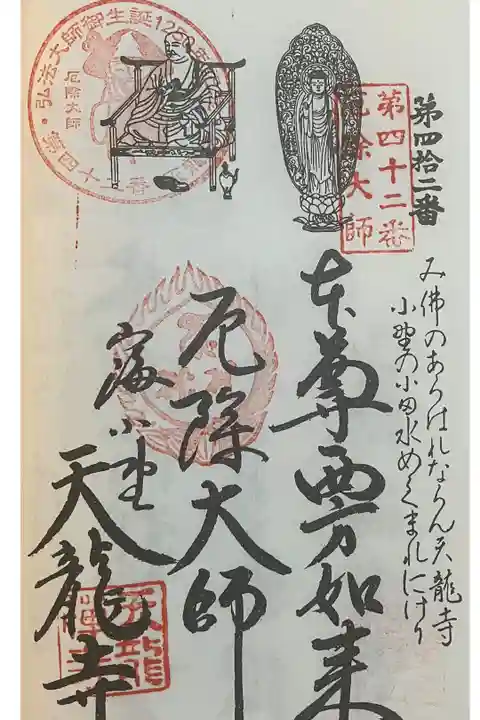 第四拾二番
み佛のあらはれならん天龍寺
小野の小田水めくまれにけり
第四十二番
厄除大師
本尊西方如来
厄除大師
小野
天龍寺
弘法大師御生誕12
厄除大師
第四十二番
天龍
禅寺